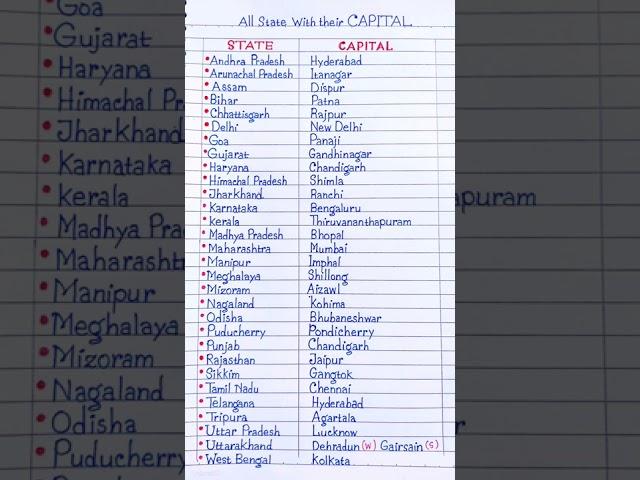 All State With their CAPITAL
STATE CAPITAL
Andhra Pradesh Hyderabad
Arunachal Pradesh Itanagar
Assam Dispur
Bihar Patna
Chhattisgarh Rajpur
Delhi New Delhi
Goa Panaji
Gujarat Gandhinagar
Haryana Chandigarh
Himachal Pradesh Shimla
Jharkhand Ranchi
Karnataka Bengaluru
Kerala Thiruvananthapuram
Madhya Pradesh Bhopal
Maharashtra Mumbai
Manipur Imphal
Meghalaya Shillong
Mizoram Aizawl
Nagaland Kohima
Odisha Bhubaneshwar
Puducherry Pondicherry
Punjab Chandigarh
Rajasthan Jaipur
Sikkim Gangtok
Tamil Nadu Chennai
Telangana Hyderabad
Tripura Agartala
Uttar Pradesh Lucknow
Uttarakhand Dehradun (W) Gairsain (S)
West Bengal Kolkata
Goa
Gujarat
Haryana
Himachal Pr
Jharkhand
Karnataka
Kerala apuram
Madhya Pra
Maharasht
Manipur
Meghalaya
Mizoram
Nagaland
Odisha r
Puducherry